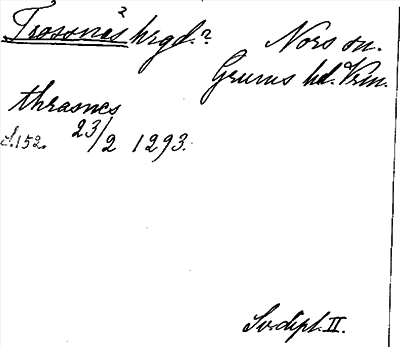 Trosnäs hrgd.? Nors sn.
Grums hd. Vrm.
thrasnes
s. 152. 23/2 1293.
Sv. dipl. II.